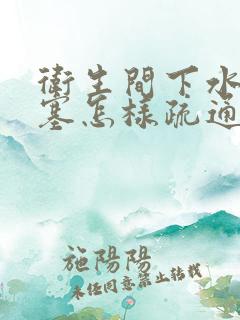 衛生間下水
塞怎樣疏通
施陽陽
未经同意禁止转载